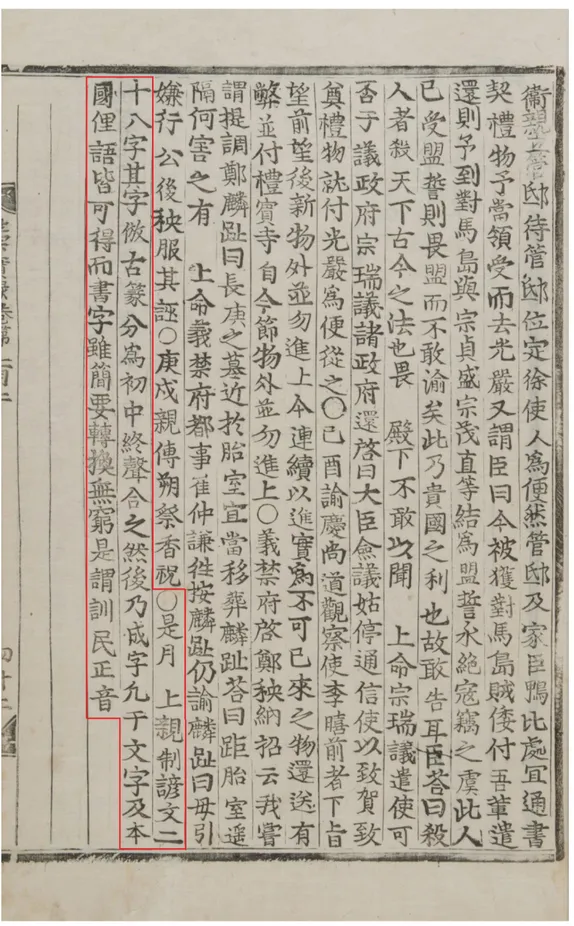 衛親荅管邸待管邸位定徐使人爲便然管邸及家臣鴨比處宜通書
契禮物予當領受而去光嚴又謂臣曰今被獲對馬島賊倭付吾軰遣
還則予到對馬島與宗貞盛宗茂直等結爲盟誓永絶寇竊之虞此人
已受盟誓則畏盟而不敢渝矣此乃貴國之利也故敢告耳臣荅曰殺
人者殺天下古今之法也畏 殿下不敢以聞 上命宗瑞議遣使可
否于議政府宗瑞議諸政府還啓曰大臣僉議姑停通信使以致賀致
奠禮物就付光嚴爲便從之○己酉諭慶尙道觀察使李暿前者下旨
望前望後新物外並勿進上今連續以進實爲不可已來之物還送有
弊並付禮賓寺自今節物外並勿進上○義禁府啓鄭秧納招云我嘗
謂提調鄭麟趾曰長庚之墓近於胎室宜當移葬麟趾荅曰距胎室遥
隔何害之有 上命義禁府都事崔仲謙徃按麟趾仍諭麟趾曰毋引
嫌行公後秧服其誣○庚戌親傳朔祭香祝○是月 上親制諺文二
十八字其字倣古篆分爲初中終聲合之然後乃成字凡于文字及本
國俚語皆可得而書字雖簡要轉換無窮是謂訓民正音